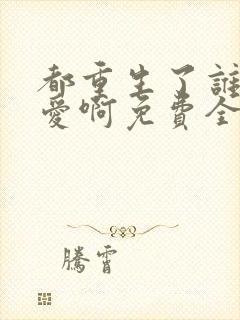 都重生了誰
愛啊免費全
騰霄